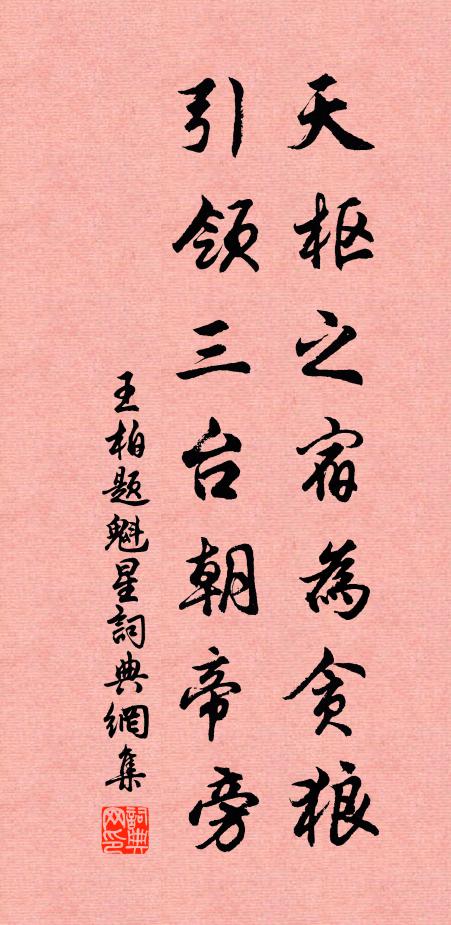 天枢之宿為贪狼
引领三台朝帝旁
王柏题魁星詞典網集
詞典网印